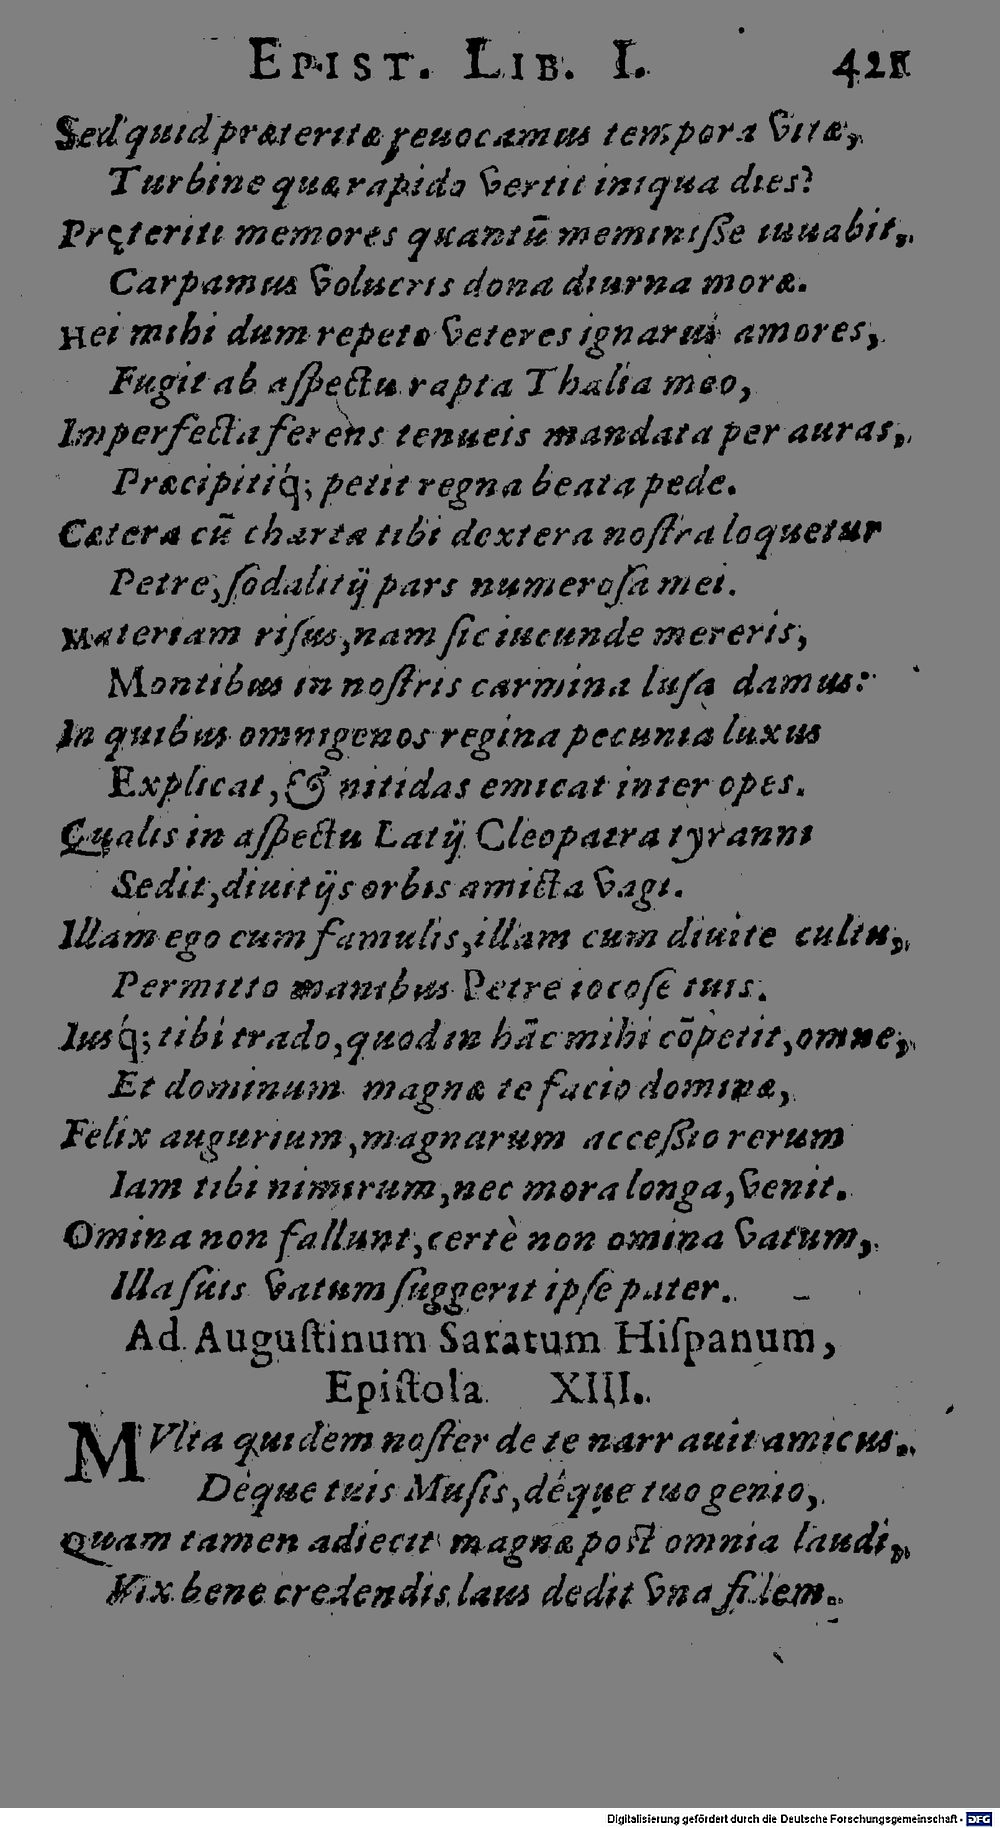 EPIST. LIB. I. 421
Sed quid præteritæ reuocamus tempora vitæ,
Turbine quæ rapido vertit iniqua dies?
Pręteriti memores quantū meminiſſe iuuabit,
Carpamus volucris dona diurna moræ.
Hei mihi dum repeto veteres ignarus amores,
Fugit ab aſpectu rapta Thalia meo,
Imperfecta ferens tenueis mandata per auras,
Præcipitiq́; petit regna beata pede.
Cætera cū charta tibi dextera noſtra loquetur
Petre, ſodalitij pars numeroſa mei.
Materiam riſus, nam ſic iucunde mereris,
Montibus in noſtris carmina luſa damus:
In quibus omnigenos regina pecunia luxus
Explicat, & nitidas emicat inter opes.
Qualis in aſpectu Latij Cleopatra tyranni
Sedit, diuitijs orbis amicta vagi.
Illam ego cum famulis, illam cum diuite cultu,
Permitto manibus Petre iocoſe tuis.
Iusq́; tibi trado, quod in hāc mihi cōpetit, omne,
Et dominum magnæ te facio dominæ,
Felix augurium, magnarum acceſſio rerum
Iam tibi nimirum, nec mora longa, venit.
Omina non fallunt, certè non omina vatum,
Illa ſuis vatum ſuggerit ipſe pater.
Ad Auguſtinum Saratum Hiſpanum,
Epiſtola XIII.
MVlta quidem noſter de te narrauit amicus.
Déque tuis Muſis, déque tuo genio,
Quam tamen adiecit magnæ poſt omnia laudi,
Vix bene credendis laus dedit vna fidem.
Digitalisierung gefördert durch die Deutsche Forschungsgemeinschaft - DFG